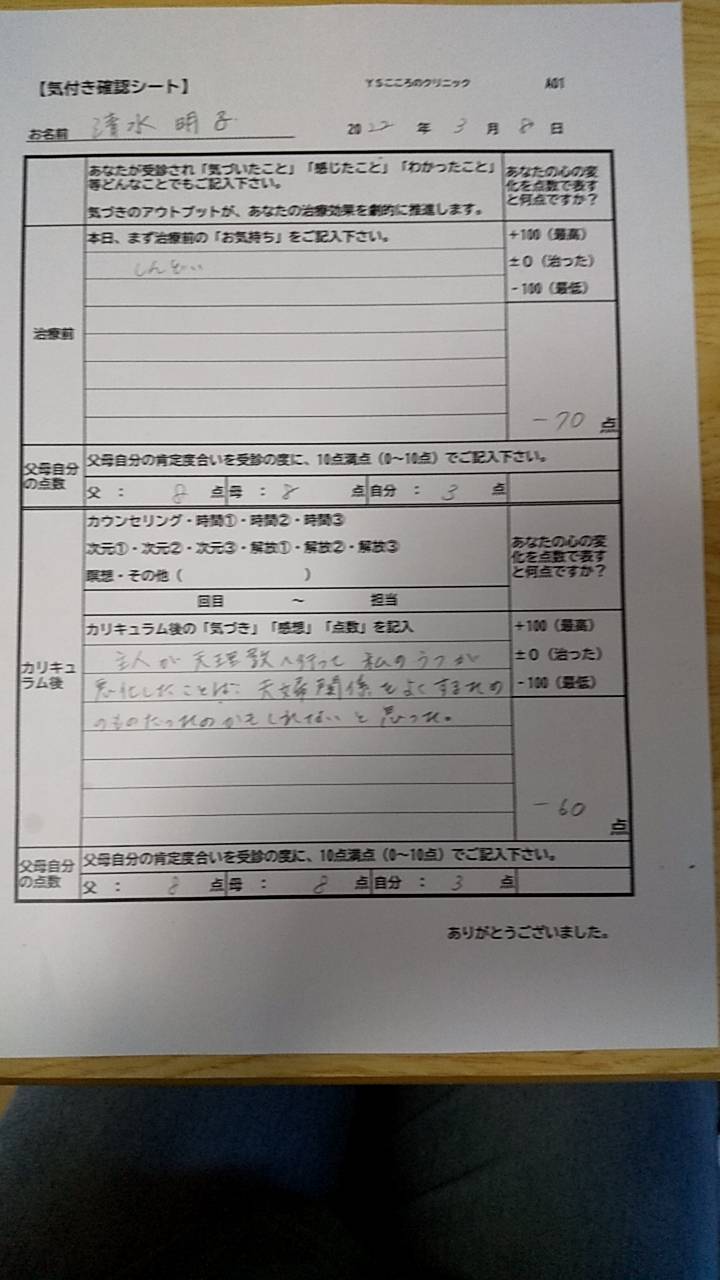 【気付き確認シート】 YSこころのクリニック A01
お名前 清水 明子 2022 年 3 月 8 日
あなたが受診され「気づいたこと」「感じたこと」「わかったこと」
等どんなことでもご記入下さい。
気づきのアウトプットが、あなたの治療効果を劇的に推進します。
あなたの心の変
化を点数で表す
と何点ですか?
治療前
本日、まず治療前の「お気持ち」をご記入下さい。
しんどい
+100(最高)
±0(治った)
-100(最低)
-70 点
父母自分
の点数
父母自分の肯定度合いを受診の度に、10点満点(0~10点)でご記入下さい。
父 : 8 点 母 : 8 点 自分 : 3 点
カリキュ
ラム後
カウンセリング・時間①・時間②・時間③
次元①・次元②・次元③・解放①・解放②・解放③
瞑想・その他( )
回目 ~ 担当
あなたの心の変
化を点数で表す
と何点ですか?
カリキュラム後の「気づき」「感想」「点数」を記入
主人が天理教へ行って私のうつが
悪化したことは、夫婦関係をよくするため
のものだったのかもしれないと思った。
+100(最高)
±0(治った)
-100(最低)
-60 点
父母自分
の点数
父母自分の肯定度合いを受診の度に、10点満点(0~10点)でご記入下さい。
父 : 8 点 母 : 8 点 自分 : 3 点
ありがとうございました。